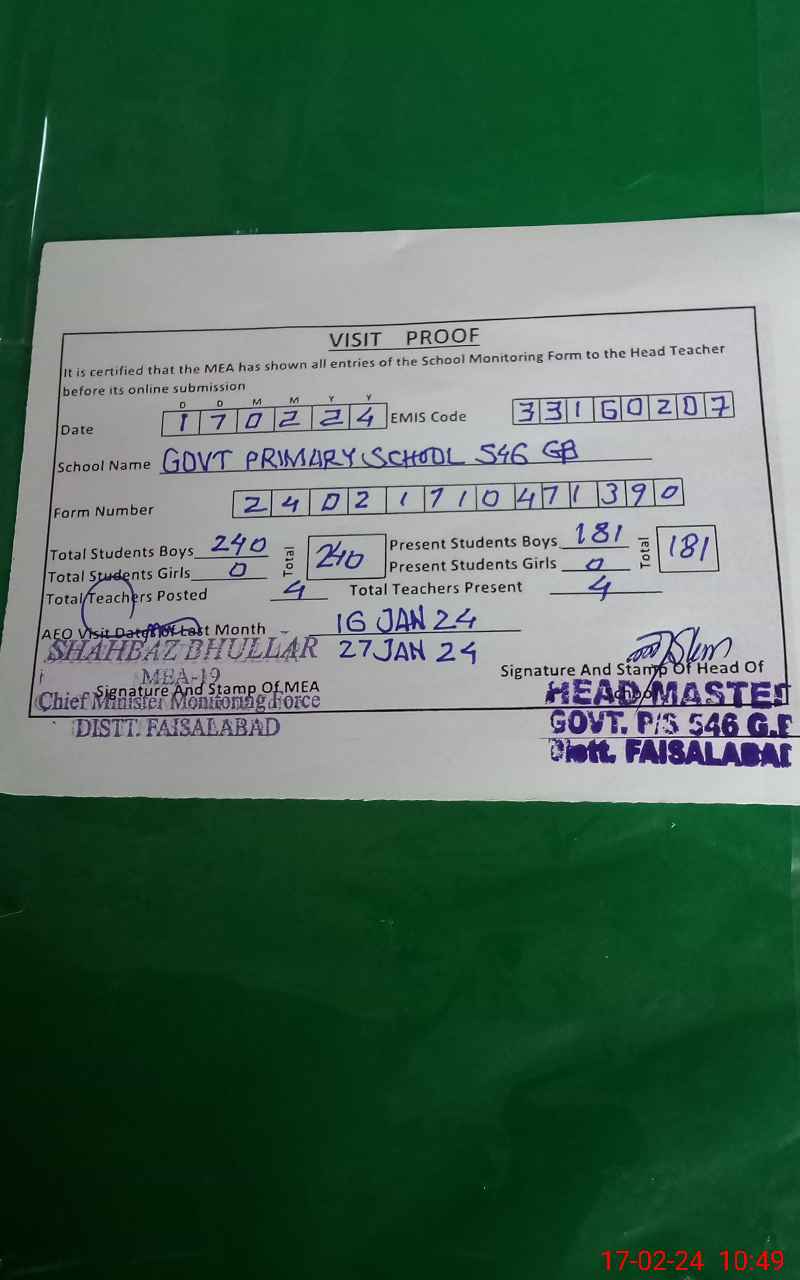 VISIT PROOF
It is certified that the MEA has shown all entries of the School Monitoring Form to the Head Teacher
before its online submission
D D M M Y Y
Date 170224 EMIS Code 33160207
School Name GOVT PRIMARY SCHOOL 546 GB
Form Number 24021710471390
Total Students Boys 240 Total 240 Present Students Boys 181 Total 181
Total Students Girls 0 Present Students Girls 0
Total Teachers Posted 4 Total Teachers Present 4
AEO Visit Date of Last Month 16 JAN 24
SHAHBAZ BHULLAR 27 JAN 24
MEA-19
Signature And Stamp Of MEA Signature And Stamp Of Head Of
School
Chief Minister Monitoring Force HEAD MASTER
DISTT. FAISALABAD GOVT. P/S 546 G.B
Distt. FAISALABAD
17-02-24 10:49